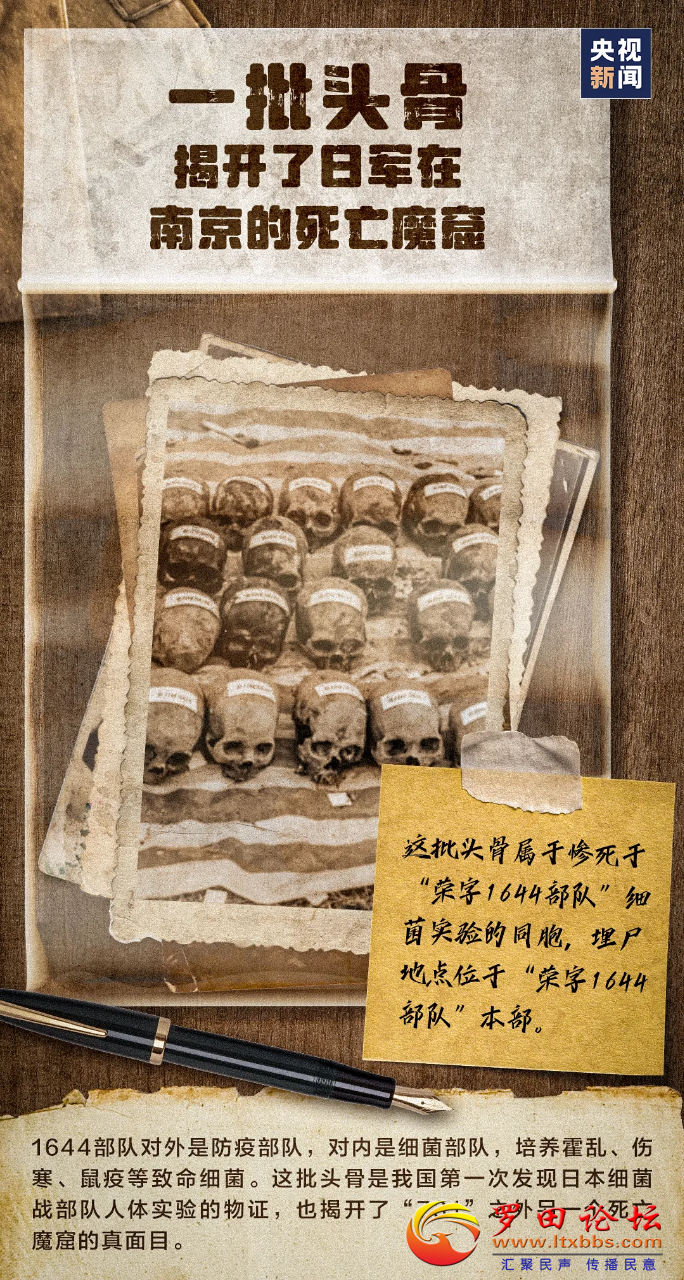 央视
新闻
一批头骨
揭开了日军在
南京的死亡魔窟
这批头骨属于惨死于
“荣字1644部队”细
菌实验的同胞，埋尸
地点位于“荣字1644
部队”本部。
1644部队对外是防疫部队，对内是细菌部队，培养霍乱、伤
寒、鼠疫等致命细菌。这批头骨是我国第一次发现日本细菌
战部队人体实验的物证，也揭开了“ ”之外另一个死亡
魔窟的真面目。
罗田论坛
www.ltxbbs.com
汇聚民声 传播民意